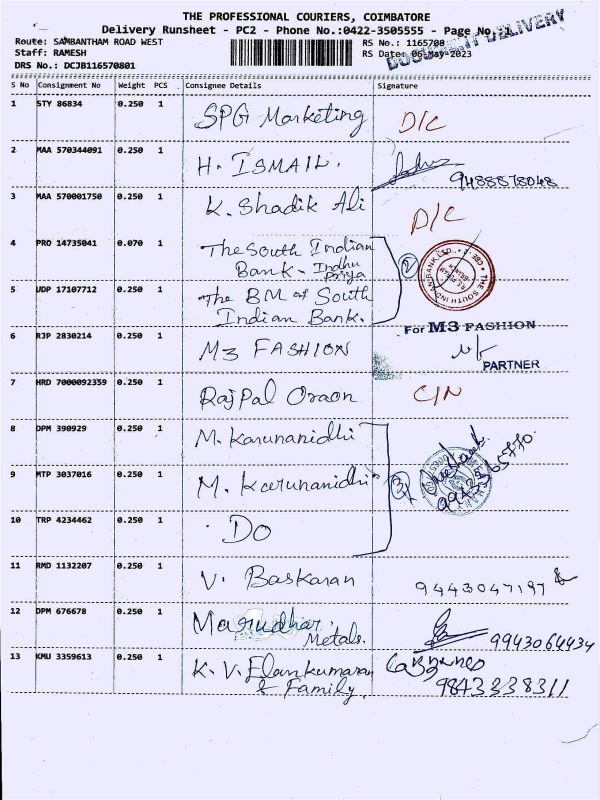 THE PROFESSIONAL COURIERS, COIMBATORE
Delivery Runsheet - PC2 - Phone No.:0422-3505555 - Page No. 1
DOCUMENT DELIVERY
Route: SAMBANTHAM ROAD WEST RS No.: 1165708
Staff: RAMESH RS Date: 06-May-2023
DRS No.: DCJB116570801
S No Consignment No Weight PCS Consignee Details Signature
1 STY 86834 0.250 1 SPG Marketing D/C
2 MAA 570344091 0.250 1 H. ISMAIL. 9488878048
3 MAA 570001750 0.250 1 K. Shadik Ali D/C
4 PRO 14735041 0.070 1 The South Indian
Bank - Indhu
Priya
2
THE SOUTH INDIAN BANK LTD.
5 UDP 17107712 0.250 1 The BM of South
Indian Bank.
6 RJP 2830214 0.250 1 M3 FASHION
For M3 FASHION
PARTNER
7 HRD 7000092359 0.250 1 RajPal Oraon C/N
8 DPM 390929 0.250 1 M. Karunanidhi
9 MTP 3037016 0.250 1 M. Karunanidhi
3
10 TRP 4234462 0.250 1 Do
11 RMD 1132207 0.250 1 V. Baskaran 9443047197
12 DPM 676678 0.250 1 Marudhar
Metals. 9943064434
13 KMU 3359613 0.250 1 K. V. Elankumaran
& Family 9843338311